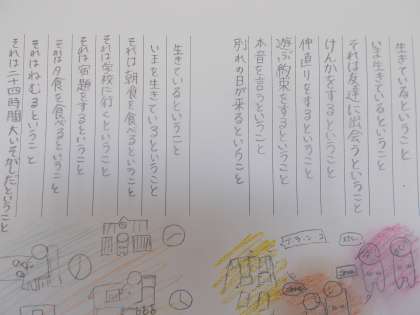 生きているということ
いま生きているということ
それは友達に出会うということ
けんかをするということ
仲直りをするということ
遊ぶ約束をするということ
本音を言うということ
別れの日が来るということ
生きているということ
いまを生きているということ
それは朝食を食べるということ
それは学校に行くということ
それは宿題をするということ
それは夕食を食べるということ
それはねむるということ
それは二十四時間大いそがしだということ